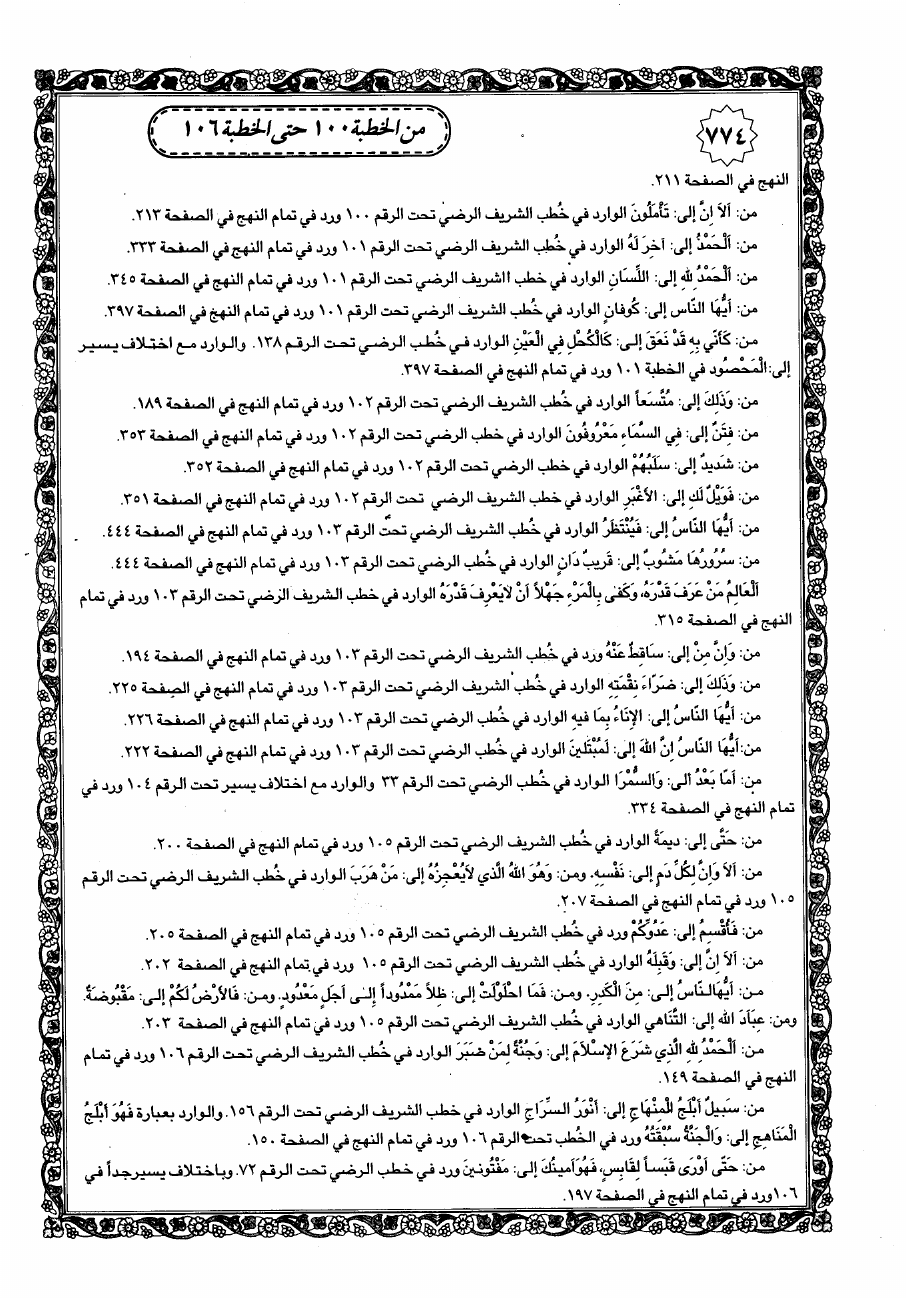 ٧٧٤
من الخطبة ١٠٠ حتى الخطبة ١٠٦
النهج في الصفحة ٢١١.
من: اَلاَ اِنَّ إلى: تَأْمَلُونَ الوارد في خُطب الشريف الرضي تحت الرقم ١٠٠ ورد في تمام النهج في الصفحة ٢١٣.
من: اَلْحَمْدُ إلى: اٰخِرَ لَهُ الوارد في خُطب الشريف الرضي تحت الرقم ١٠١ ورد في تمام النهج في الصفحة ٣٣٣.
من: اَلْحَمْدُ لِلهِ إلى: اللِّسَانِ الوارد في خطب ااشريف الرضي تحت الرقم ١٠١ ورد في تمام النهج في الصفحة ٣٤٥.
من: اَيُّهَا النّاس إلى: كُوفانِ الوارد في خُطب الشريف الرضي تحت الرقم ١٠١ ورد في تمام النهج في الصفحة ٣٩٧.
من: كَأَنّي بِهِ قَدْ نَعَقَ إلى: كَالْكُحْلِ فِي الْعَيْنِ الوارد في خُطب الرضي تحت الرقم ١٣٨. والوارد مع اختلاف يسير
إلى:الْمَحْصُود في الخطبة ١٠١ ورد في تمام النهج في الصفحة ٣٩٧.
من: وَذَلِكَ إلى: مُتَّسَعاً الوارد في خُطب الشريف الرضي تحت الرقم ١٠٢ ورد في تمام النهج في الصفحة ١٨٩.
من: فِتَنٌ إلى: فِي السَّمَاءِ مَعْرُوفُونَ الوارد في خطب الرضي تحت الرقم ١٠٢ ورد في تمام النهج في الصفحة ٣٥٣.
من: شَديدٌ إلى: سَلَبُهُمْ الوارد في خطب الرضي تحت الرقم ١٠٢ ورد في تمام النهج في الصفحة ٣٥٢.
من: فَوَيْلٌ لَكِ إلى: الأَغْبَرِ الوارد في خطب الشريف الرضي تحت الرقم ١٠٢ ورد في تمام النهج في الصفحة ٣٥١.
من: اَيُّهَا النّاسُ إلى: فَيُنْتَظَرُ الوارد في خُطب الشريف الرضي تحت الرقم ١٠٣ ورد في تمام النهج في الصفحة ٤٤٤.
من: سُرُورُهَا مَشُوبٌ إلى: قَريبٌ دَانٍ الوارد في خُطب الرضي تحت الرقم ١٠٣ ورد في تمام النهج في الصفحة ٤٤٤.
اَلْعَالِمُ مَنْ عَرَفَ قَدْرَهُ، وَكَفىٰ بِالْمَرْءِ جَهْلاً اَنْ لاٰيَعْرِفَ قَدْرَهُ الوارد في خطب الشريف الرضي تحت الرقم ١٠٣ ورد في تمام
النهج في الصفحة ٣١٥.
من: وَاِنَّ مِنْ إلى: سَاقِطٌ عَنْهُ ورد في خُطب الشريف الرضي تحت الرقم ١٠٣ ورد في تمام النهج في الصفحة ١٩٤.
من: وَذَلِكَ إلى: ضَرّاءَ نِقْمَتِهِ الوارد في خُطب الشريف الرضي تحت الرقم ١٠٣ ورد في تمام النهج في الصفحة ٢٢٥.
من: اَيُّهَا النّاسُ إلى: الإِنَاءُ بِمَا فيهِ الوارد في خُطب الرضي تحت الرقم ١٠٣ ورد في تمام النهج في الصفحة ٢٢٦.
من:اَيُّهَا النّاسُ اِنَّ اللهَ إلى: لَمُبْتَلينَ الوارد في خُطب الرضي تحت الرقم ١٠٣ ورد في تمام النهج في الصفحة ٢٢٢.
من: اَمَا بَعْدُ الى: وَالسُّمْرَا الوارد في خُطب الرضي تحت الرقم ٣٣ والوارد مع اختلاف يسير تحت الرقم ١٠٤ ورد في
تمام النهج في الصفحة ٣٣٤.
من: حَتَّى إلى: ديمَةً الوارد في خُطب الشريف الرضي تحت الرقم ١٠٥ ورد في تمام النهج في الصفحة ٢٠٠.
من: اَلاَ وَاِنَّ لِكُلِّ دَمٍ إلى: نَفْسِهِ. ومن: وَهُوَ اللهُ الَّذي لاَيُعْجِزُهُ إلى: مَنْ هَرَبَ الوارد في خُطب الشريف الرضي تحت الرقم
١٠٥ ورد في تمام النهج في الصفحة ٢٠٧.
من: فَأُقْسِمُ إلى: عَدُوِّكُمْ ورد في خُطب الشريف الرضي تحت الرقم ١٠٥ ورد في تمام النهج في الصفحة ٢٠٥.
من: اَلاَ اِنَّ إلى: وَقَبِلَهُ الوارد في خُطب الشريف الرضي تحت الرقم ١٠٥ ورد في تمام النهج في الصفحة ٢٠٢.
من: اَيُّهَاالنّاسُ إلى: مِنَ الْكَدَرِ. ومن: فَمَا احْلَوْلَتْ إلى: ظِلاًّ مَمْدُوداً إلى اَجَلٍ مَعْدُودٍ. ومن: فَالأَرْضُ لَكُمْ إلى: مَقْبُوضَةٌ.
ومن: عِبَادَ الله إلى: التَّنَاهي الوارد في خُطب الشريف الرضي تحت الرقم ١٠٥ ورد في تمام النهج في الصفحة ٢٠٣.
من: اَلْحَمْدُ لِلهِ الَّذي شَرَعَ الإِسْلاَمَ إلى: وَجُنَّةً لِمَنْ صَبَرَ الوارد في خُطب الشريف الرضي تحت الرقم ١٠٦ ورد في تمام
النهج في الصفحة ١٤٩.
من: سَبيلٌ اَبْلَجُ الْمِنْهَاجِ إلى: اَنْوَرُ السِّرَاجِ الوارد في خطب الشريف الرضي تحت الرقم ١٥٦. والوارد بعبارة فَهُوَ اَبْلَجُ
الْمَنَاهِجِ إلى: وَالْجَنَّةُ سُبْقَتُهُ ورد في الخُطب تحت الرقم ١٠٦ ورد في تمام النهج في الصفحة ١٥٠.
من: حَتّى اَوْرَى قَبَساً لِقَابِسٍ، فَهُوَاَمينُكَ إلى: مَفْتُونينَ ورد في خطب الرضي تحت الرقم ٧٢. وباختلاف يسيرجداً في
١٠٦ورد في تمام النهج في الصفحة ١٩٧.